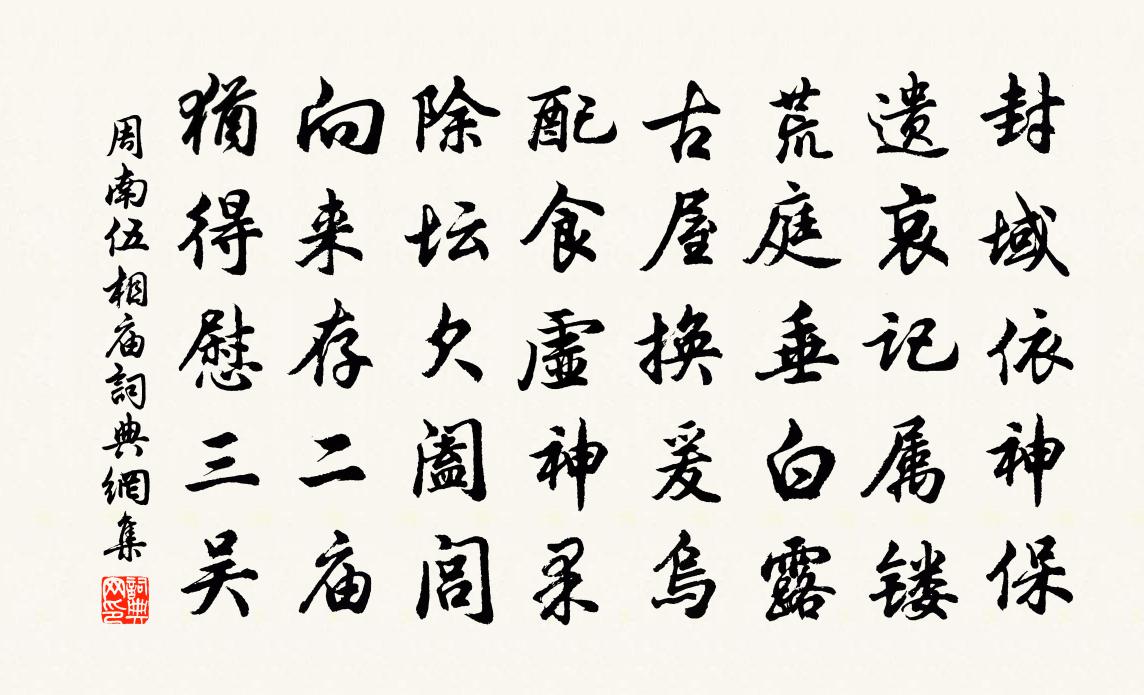 封域依神保
遗哀记属镂
荒庭垂白露
古屋换爰乌
配食虚神
除坛欠阖闾
向来存二庙
猶得慰三吴
周南伍相庙詞典網集
詞典网印